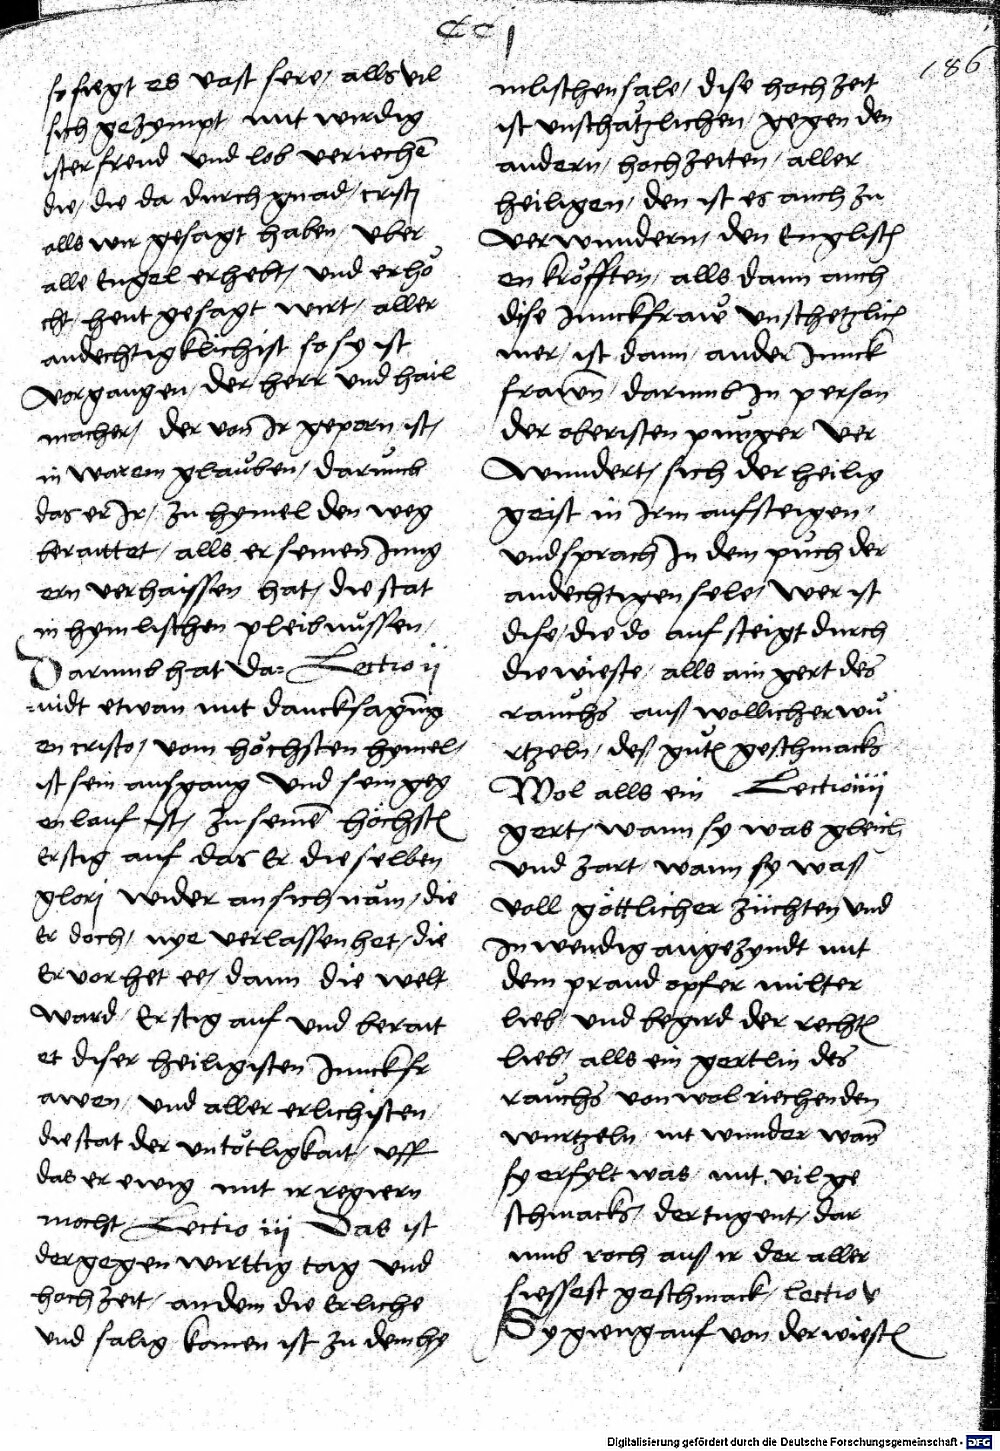 CCj
186
so siegt es vast sere / alls vil
sich gezympt mit wirdig
ister freud vnd lob veriechē
die / die da durch gnad / cristj
alls wir gesagt haben / vber
alle Engel erhebt / vnd erhö
cht / heut gesagt wirt / aller
andechtigklichist so sy ist
vorgangen / der herr vnd hail
macher / der von Ir geporn ist /
in warem glauben / darumb
das er Ir / zu hymel den weg
beraittet / alls er seinen Jung
ern verhaissen hat / die stat
in hymlischen pleibnussen /
Darumb hat Da= Lectio ij
=uidt etwan mit dancksagūng
en cristo / vom höchsten hymel /
ist sein ausgang vnd sein geg
en lauf ist / zu seinē höchstē
Er stig auf das Er die selben
glorj wider an sich näm / die
Er doch / nye verlassen het / die
Er vor het ee / dann die welt
ward / Er stig auf vnd berait
et diser heiligisten Junckfr
awen / vnd aller erlichisten /
die stat der vntötligkait / vff
das er ewig mit ir regiern
mocht Lectio iij Das ist
der gegenwirttig tag vnd
hochzeit / an dem die Erliche
vnd sälig komen ist zu dem hy
mlischen sale / dise hochzeit
ist vnschätzlichen / gegen den
andern / hochzeiten / aller
heiligen / den ist es auch zu
verwundern / den Englisch
en kröfften / alls dann auch
dise Junckfraw vnschetzlich
mer / ist dann / ander Junck
frawn / darumb In person
der oberisten purger ver
wundert / sich der heilig
geist in Irm aufsteigen /
vnd sprach In dem puch der
andechtigen sele / wer ist
dise / die do auf steigt durch
die wieste / alls ain gert des
rauchs auß wollicher wu
rtzeln / deß gutē geschmacks
Wol alls ein Lectio iiij
gert / wann sy was gleich
vnd zart / wann sy waß
voll göttlicher züchten vnd
Inwendig angezyndt mit
dem prand opfer milter
lieb / vnd begird der rechtē
lieb / alls ein gertlin des
rauchs von wolriechenden
wurtzeln / nit wunder wañ
sy erfylt was / mit vil ge
schmacks / der tugent / dar
umb roch auß ir der aller
siessest geschmack / lectio v
Sy gieng auf von der wiestē
Digitalisierung gefördert durch die Deutsche Forschungsgemeinschaft - DFG